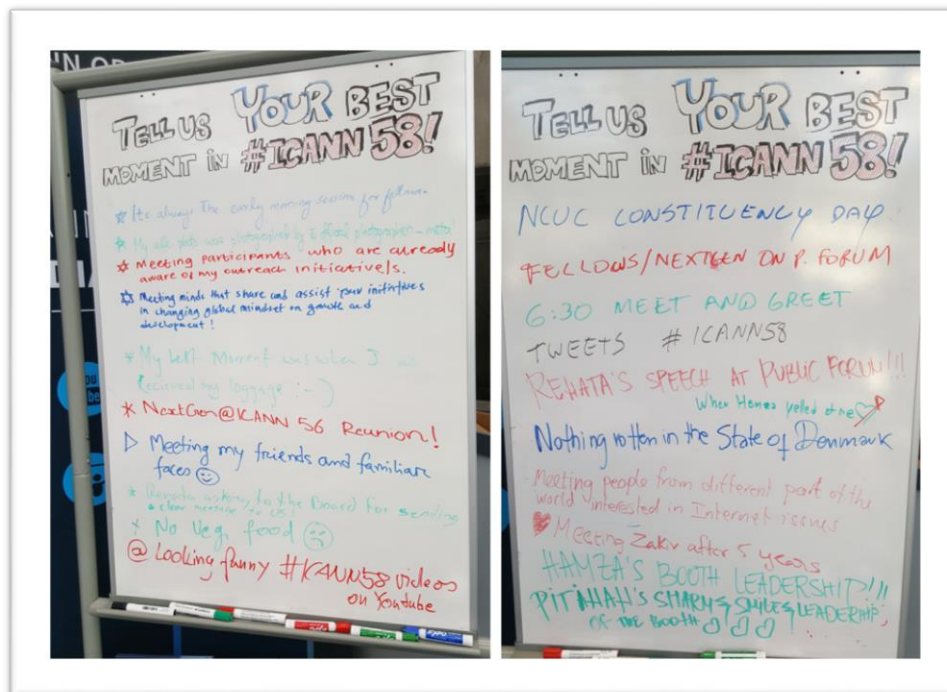 TELL US YOUR BEST
MOMENT in #ICANN 58!
Its always The early morning session for fellows.
My was photographed by photographer
Meeting participants who are already
aware of my outreach initiative/s.
Meeting minds that share and assist initiatives
in changing global mindset on and
development!
My best moment was when I
my luggage :-)
NextGen@ICANN 56 Reunion!
Meeting my friends and familiar
faces
to the Board for sending
a clear message to US!
No Veg. food
@ Looking funny #ICANN58 videos
on Youtube
You
TELL US YOUR BEST
MOMENT in #ICANN 58!
NCUC CONSTITUENCY DAY
FELLOWS/NEXTGEN ON P. FORUM
6:30 MEET AND GREET
TWEETS #ICANN58
SPEECH AT PUBLIC FORUM!!!
When yelled at me
Nothing rotten in the State of Denmark
Meeting people from different part of the
world interested in Internet issues
Meeting Zakir after 5 years
HAMZA'S BOOTH LEADERSHIP!!!
SMILES, LEADERSHIP,
OF THE BOOTH